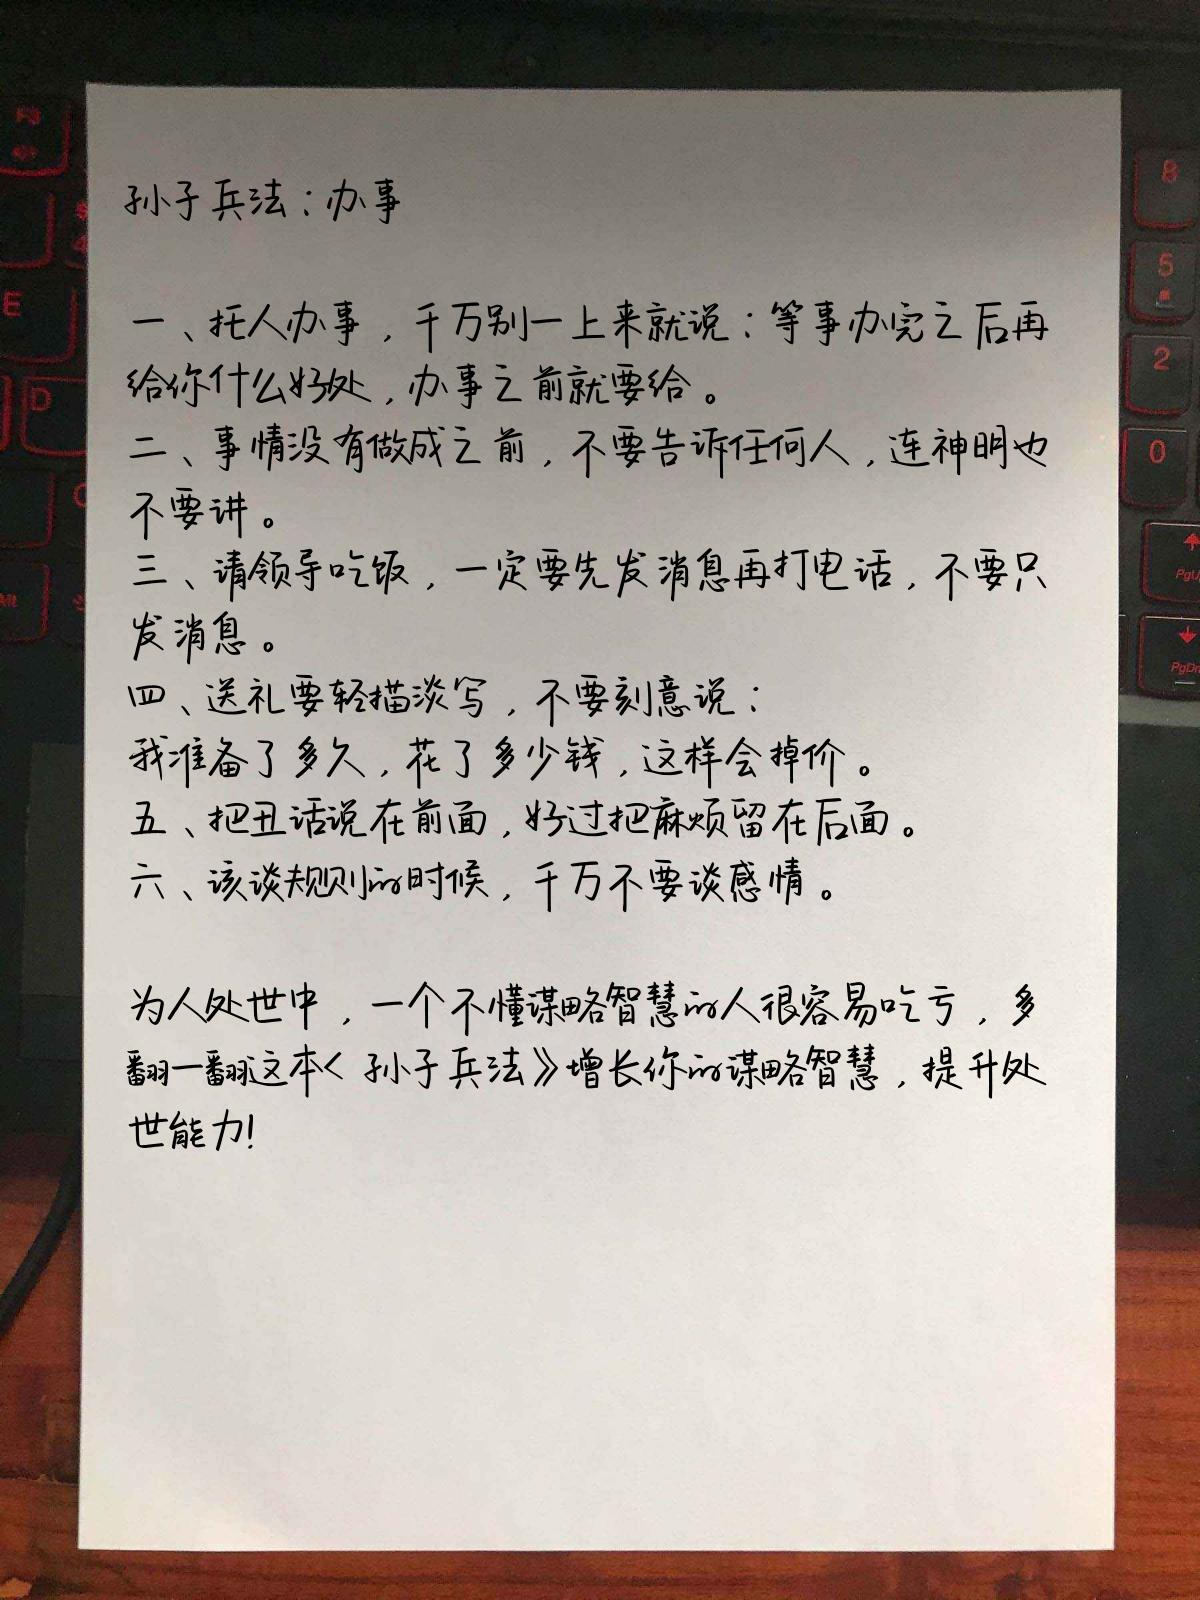 孙子兵法：办事
一、托人办事，千万别一上来就说：等事办完之后再
给你什么好处，办事之前就要给。
二、事情没有做成之前，不要告诉任何人，连神明也
不要讲。
三、请领导吃饭，一定要先发消息再打电话，不要只
发消息。
四、送礼要轻描淡写，不要刻意说：
我准备了多久，花了多少钱，这样会掉价。
五、把丑话说在前面，好过把麻烦留在后面。
六、该谈规则的时候，千万不要谈感情。
为人处世中，一个不懂谋略智慧的人很容易吃亏，多
翻一翻这本《孙子兵法》增长你的谋略智慧，提升处
世能力!
E
D
8
5
2
0
PgU
PgDn